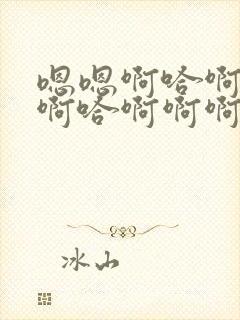 嗯嗯啊哈啊
啊哈啊啊啊
冰山